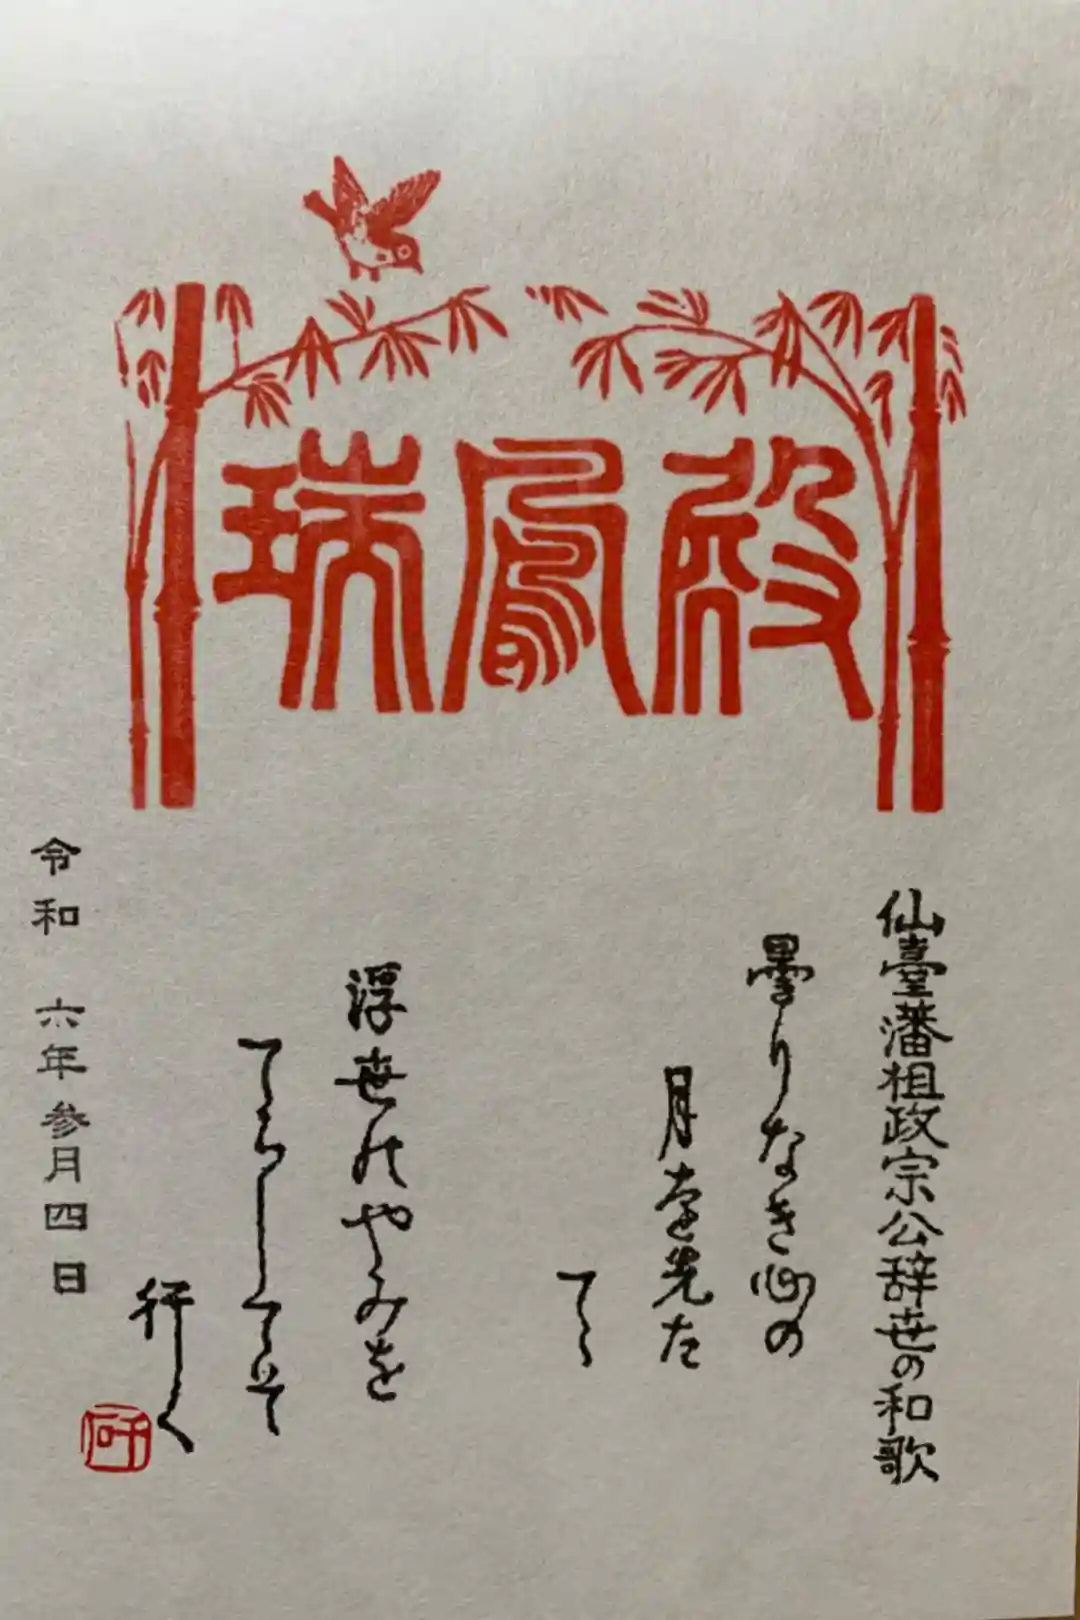 瑞鳳殿
仙臺藩祖政宗公辞世の和歌
曇りなき心の
月を先た
てゝ
浮世のやみを
てらしてそ
行く
令和 六年 参月 四日